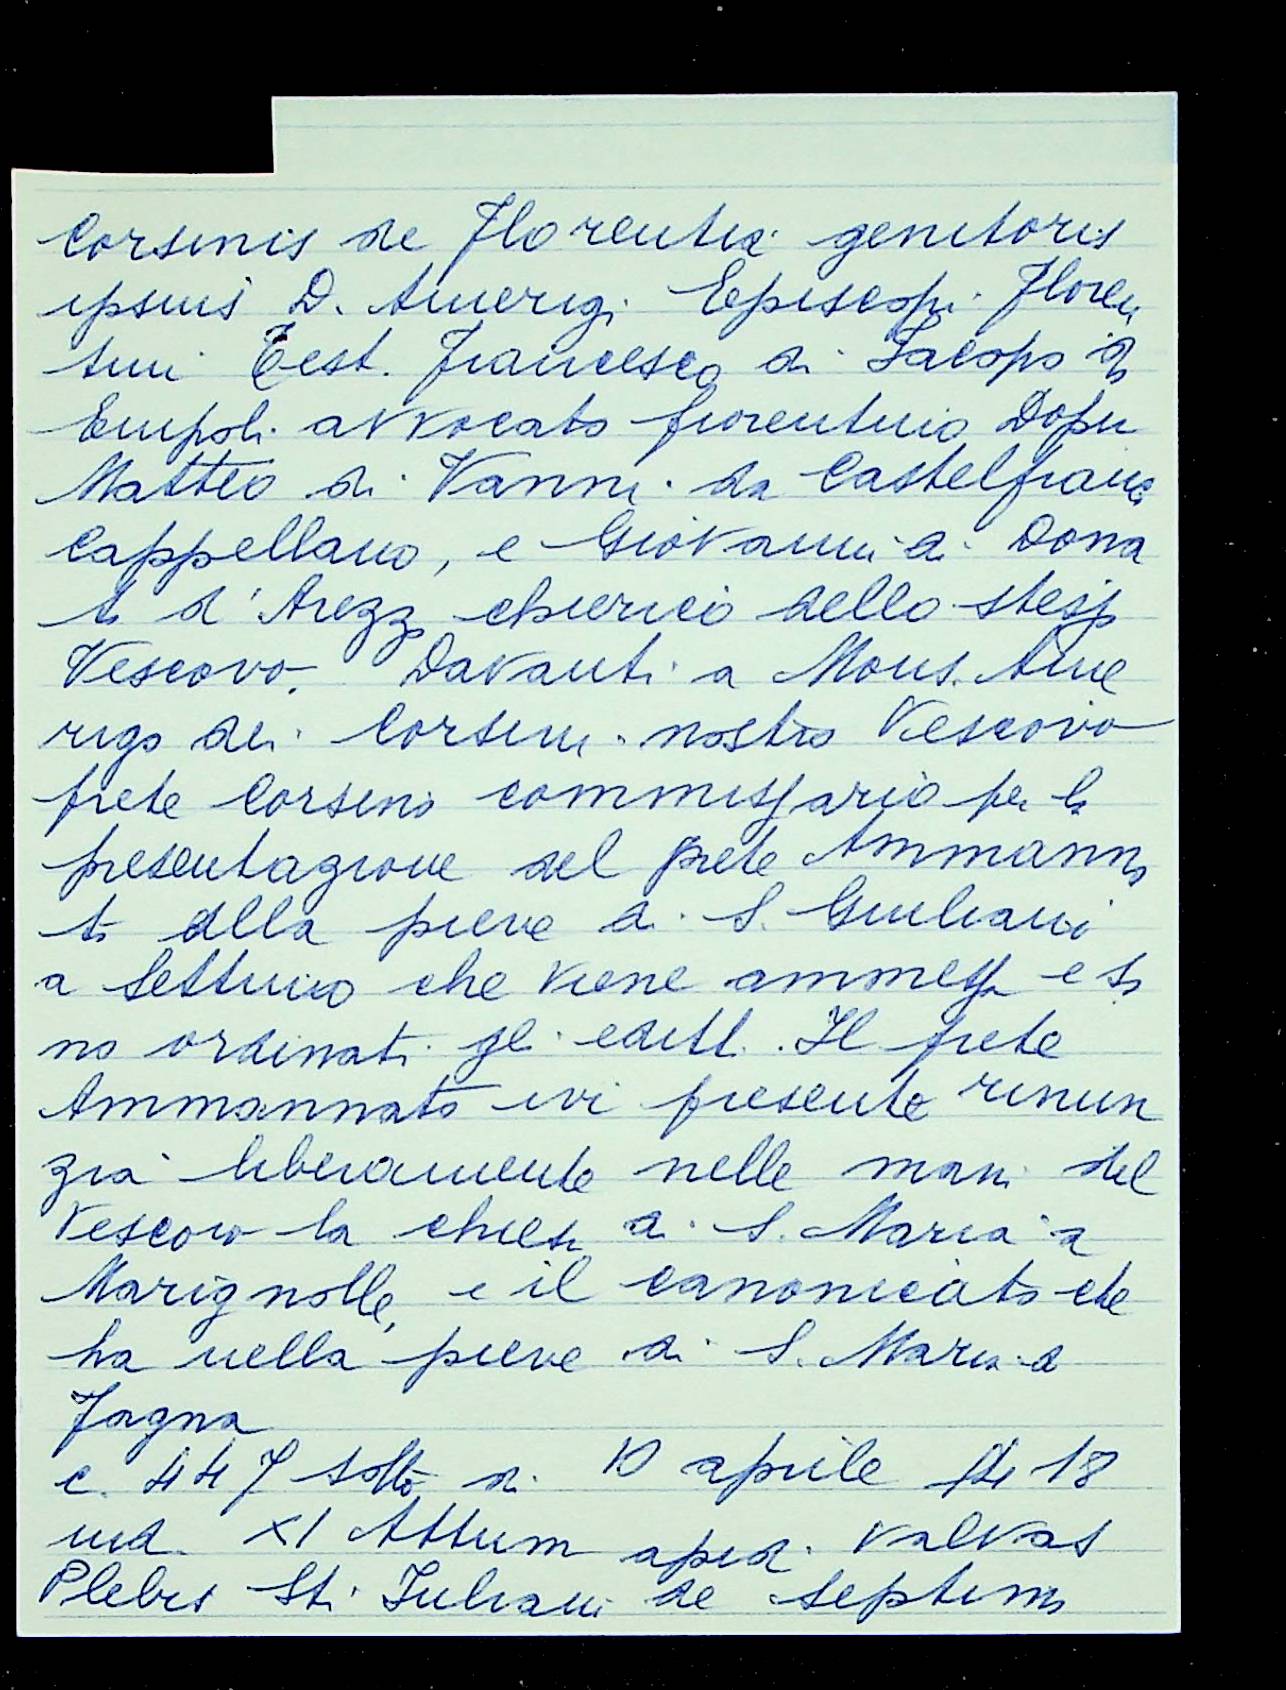 Corsinis de Florentia genitoris
ipsius D. Amerigi Episcopi Floren
tini Test. Francesco di Iacopo da
Empoli avvocato fiorentino Dopn
Matteo di Vanni da Castelfranc
Cappellano, e Giovanni di Dona
to d'Arezzo chierico dello stesso
Vescovo. Davanti a Mons. Ame
rigo dei Corsini nostro Vescovo
prete Corsino commissario per la
presentazione del prete Ammanna
to alla pieve di S. Giuliano
a Settimo che viene ammessa e so
no ordinati gli editti. Il prete
Ammannato ivi presente rinun
zia liberamente nelle mani del
Vescovo la chiesa di S. Maria a
Marignolle, e il canonicato che
ha nella pieve di S. Maria a
Fagna
c. 447 sotto di 10 aprile 1418
ind. XI Attum apud valvas
Plebis Sti Iuliani de Septimo